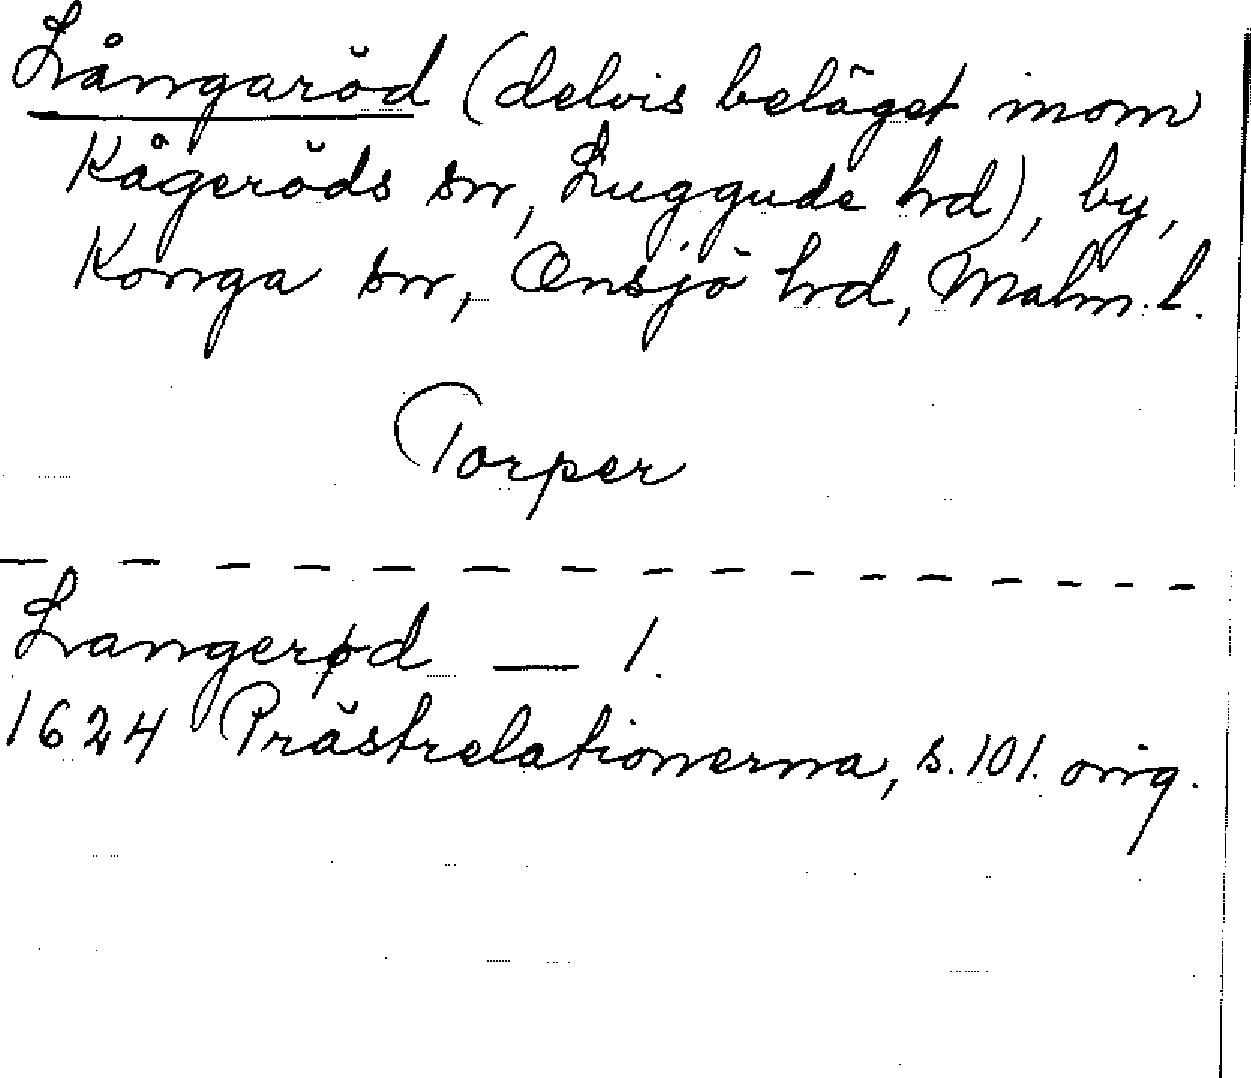 Långaröd (delvis beläget inom
Kågeröds sn, Luggude hd), by,
Konga sn, Onsjö hd, Malm. l.
Torper
Langerød — 1.
1624 Prästrelationerna, s. 101. orig.